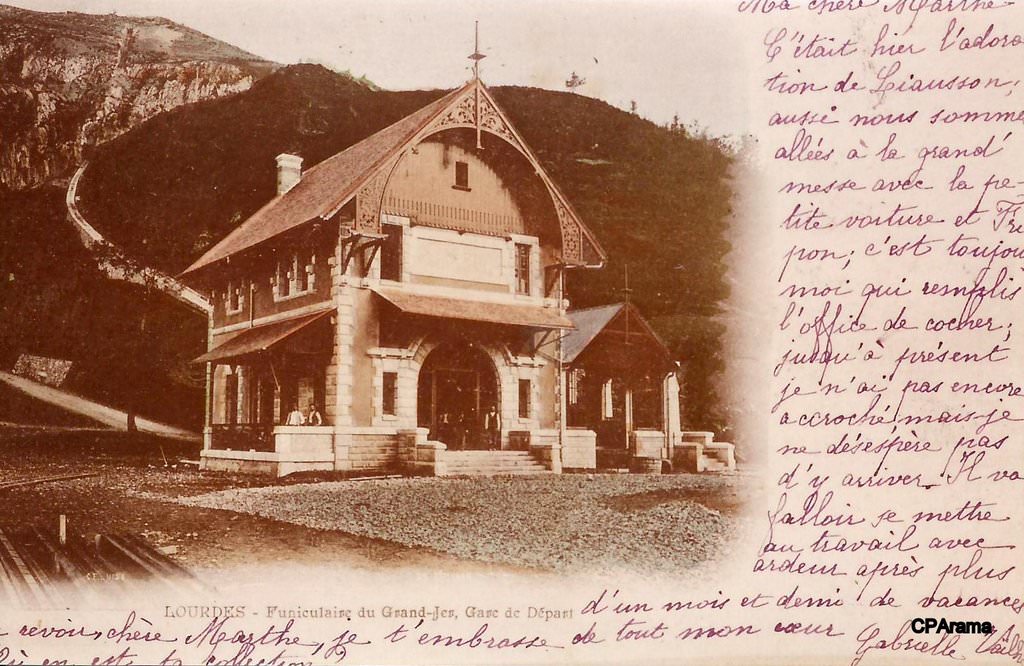 Ma chère Marthe
C'était hier l'adora
tion de Liausson,
aussi nous somme
allées à la grand'
messe avec la pe-
tite voiture et Fri
pon; c'est toujou
moi qui remplis
l'office de cocher;
jusqu'à présent
je n'ai pas encore
accroché, mais je
ne désespère pas
d'y arriver. Il va
falloir se mettre
au travail avec
ardeur après plus
d'un mois et demi de vacances
LOURDES - Funiculaire du Grand-Jer, Gare de Départ
revoir, chère Marthe, je t'embrasse de tout mon cœur
Gabrielle
en est ta collection?
CPArama